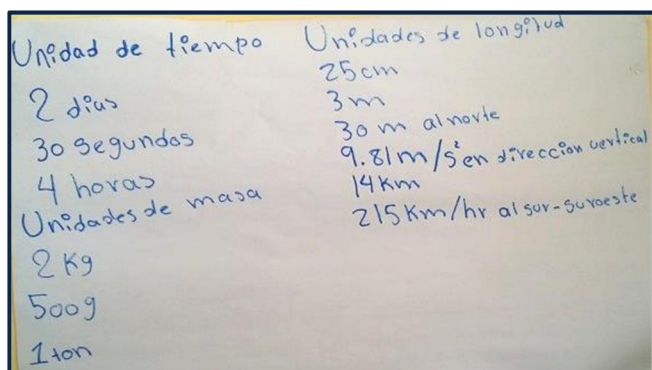 Unidad de tiempo
2 dias
30 segundos
4 horas
Unidades de masa
2 Kg
500g
1 ton
Unidades de longitud
25cm
3m
30 m al norte
9.81m/s² en direccion vertical
14Km
215Km/hr al sur-suroeste